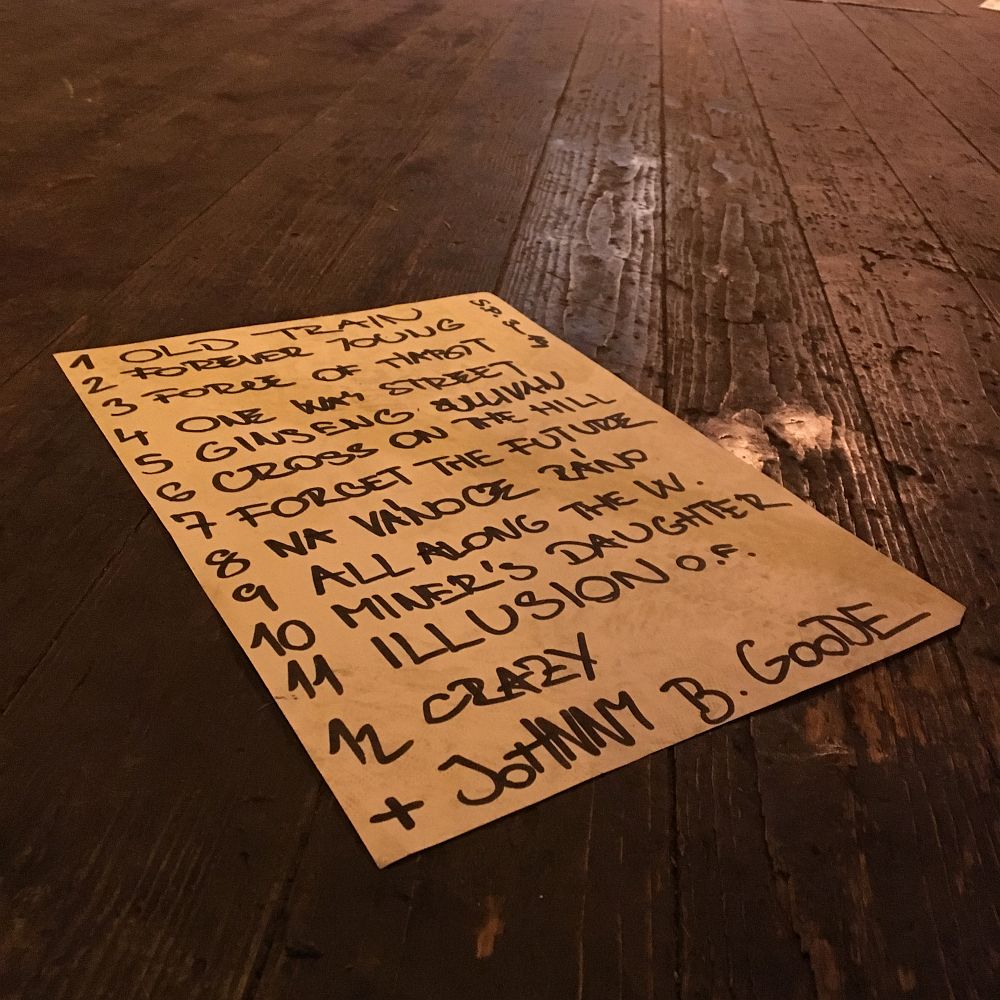 1 OLD TRAIN
2 FOREVER YOUNG
3 FORCE OF
4 ONE WAY STREET
5 GINSENG SULLIVAN
6 CROSS ON THE HILL
7 FORGET THE FUTURE
8 NA VÁNOCE RÁNO
9 ALL ALONG THE W.
10 MINER'S DAUGHTER
11 ILLUSION O.F.
12 CRAZY
+ JOHNNY B. GOODE